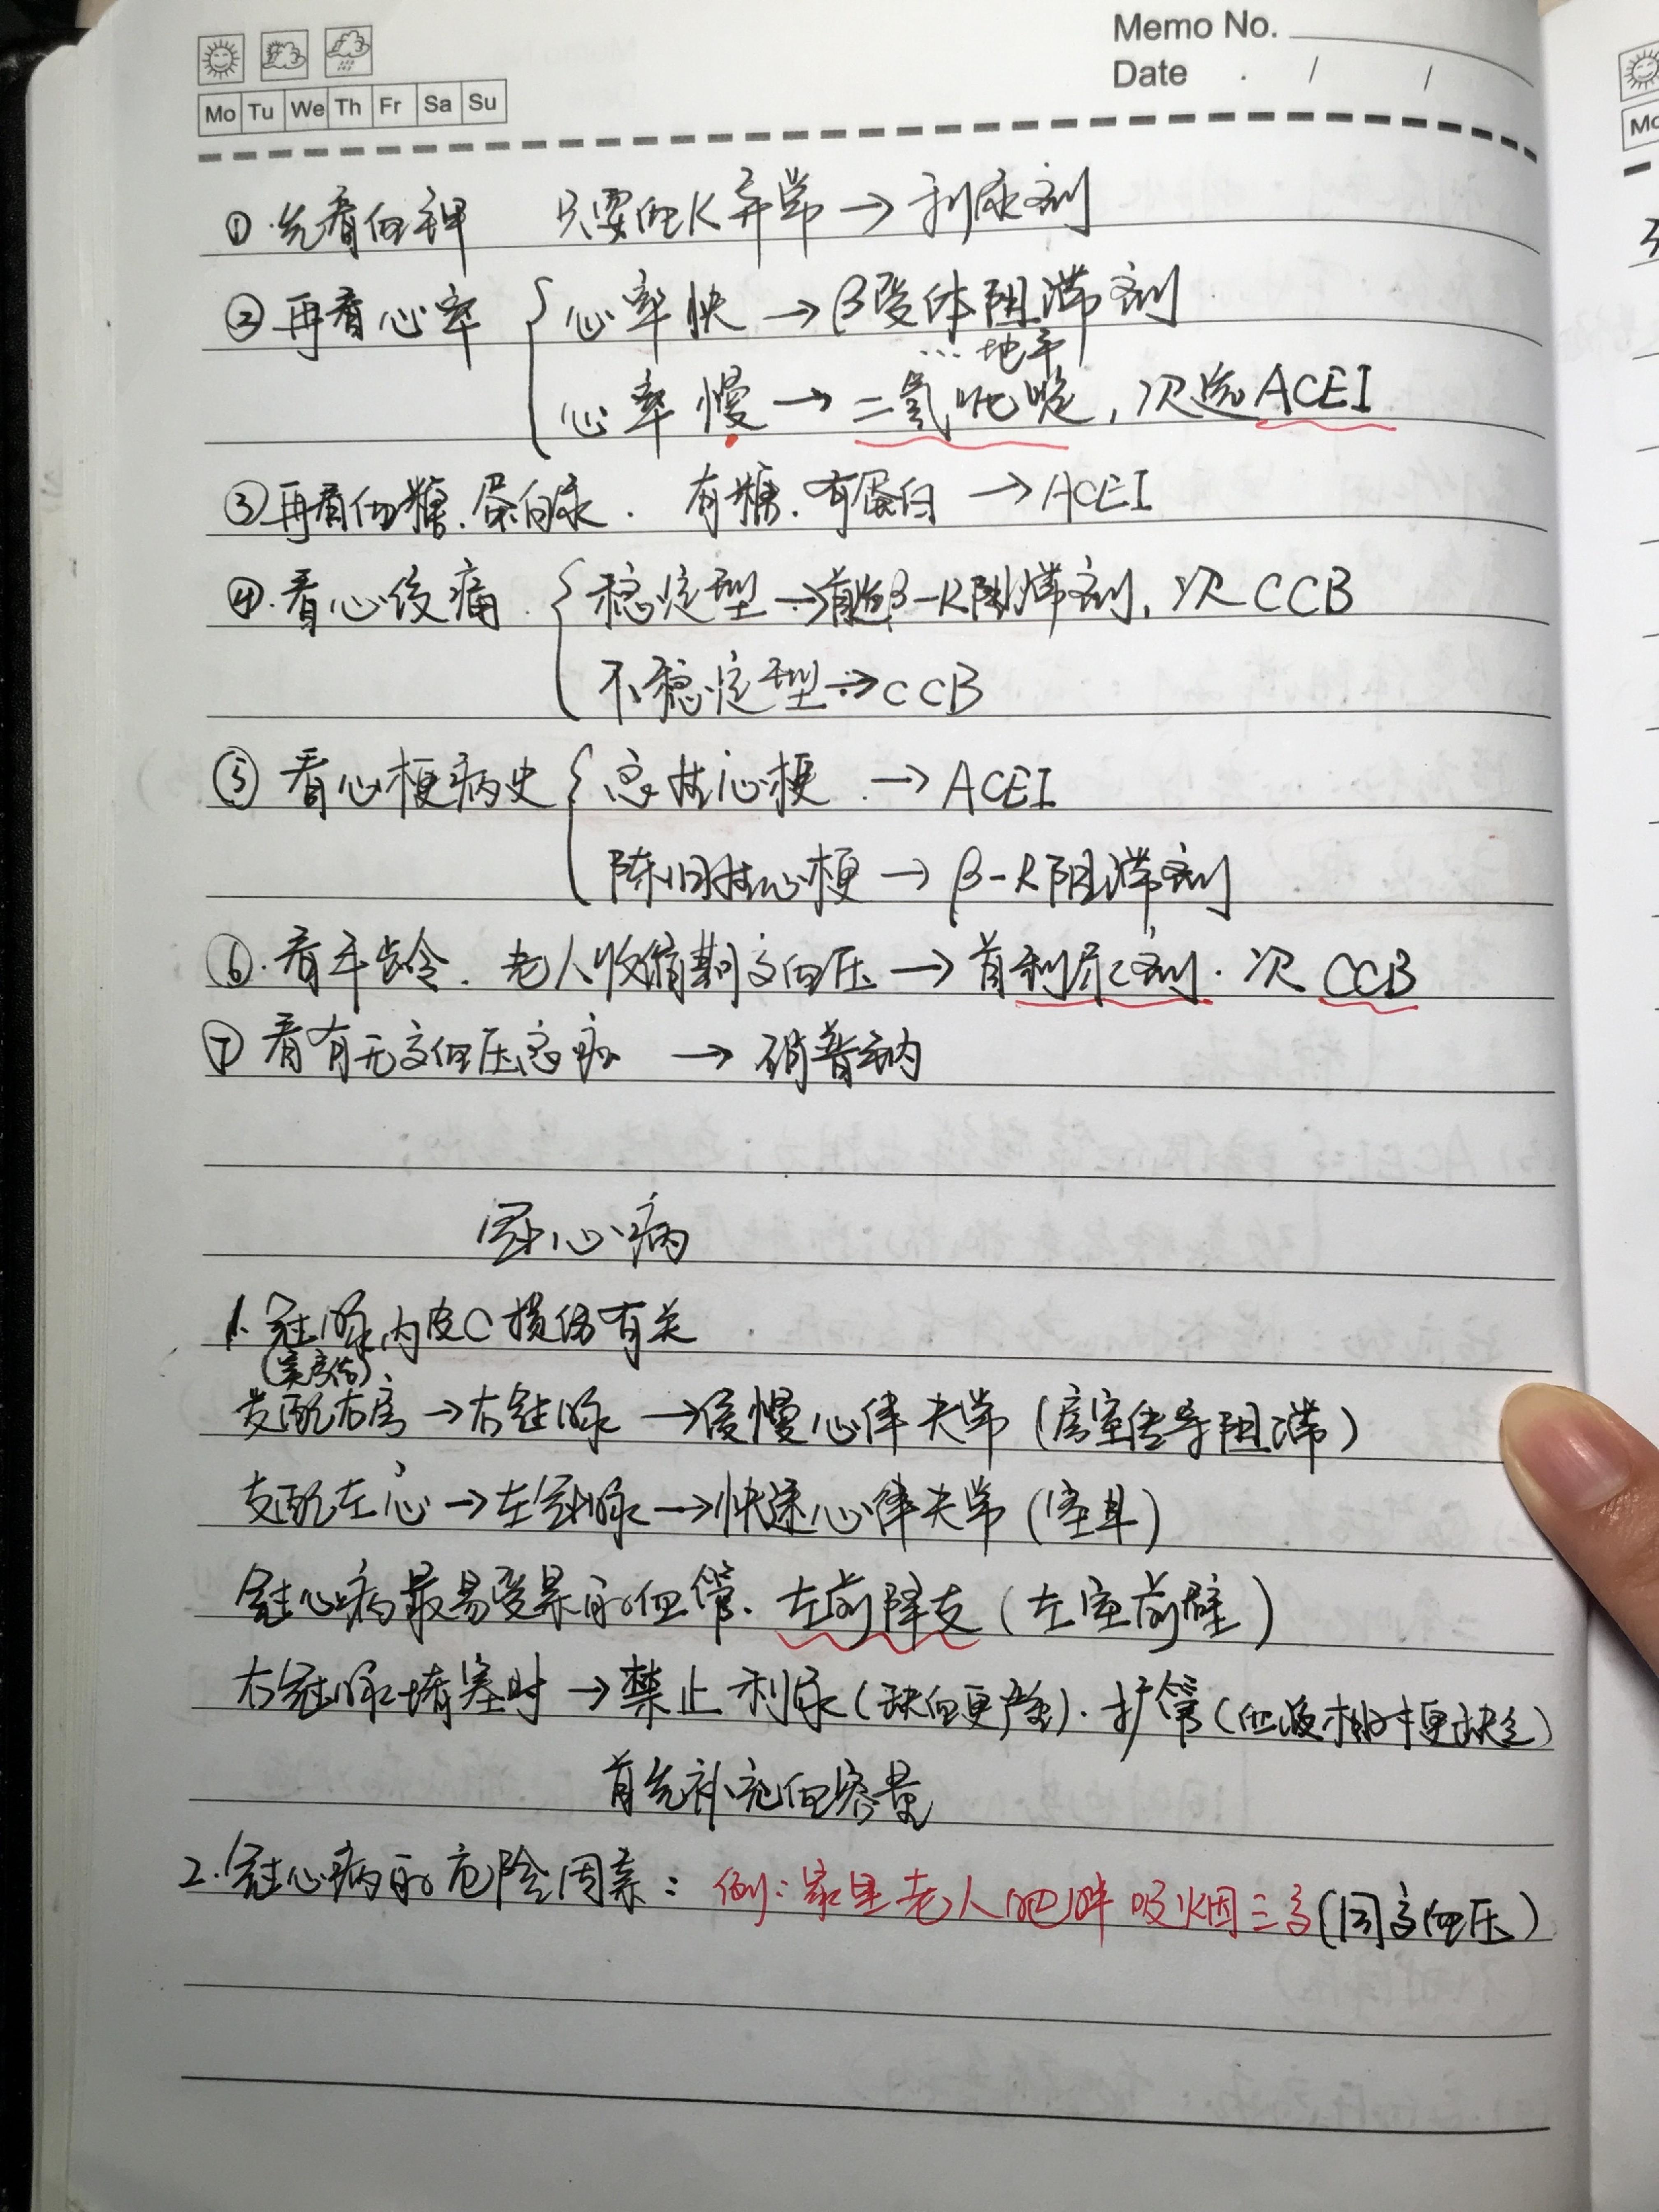 Memo No.
Date / /
Mo Tu We Th Fr Sa Su
① 先看血钾 只要血K异常→利尿剂
② 再看心率 { 心率快→β受体阻滞剂
…地平
心率慢→二氢吡啶,次选ACEI
③ 再看血糖.蛋白尿. 有糖.有蛋白→ACEI
④.看心绞痛. { 稳定型→首选β-R阻滞剂,次CCB
不稳定型→CCB
⑤ 看心梗病史 { 急性心梗→ACEI
陈旧性心梗→β-R阻滞剂
⑥.看年龄.老人收缩期高血压→首利尿剂.次CCB
⑦ 看有无高血压急症→硝普钠
冠心病
1.冠脉内皮C损伤有关
(窦房结)
支配右房→右冠脉→缓慢心律失常(房室传导阻滞)
支配左心→左冠脉→快速心律失常(室早)
冠心病最易受累的血管.左前降支(左室前壁)
右冠脉堵塞时→禁止利尿(缺血更严重).扩管(血液相对更缺乏)
首先补充血容量
2.冠心病的危险因素:例:家里老人肥胖吸烟三高(同高血压)
Mo